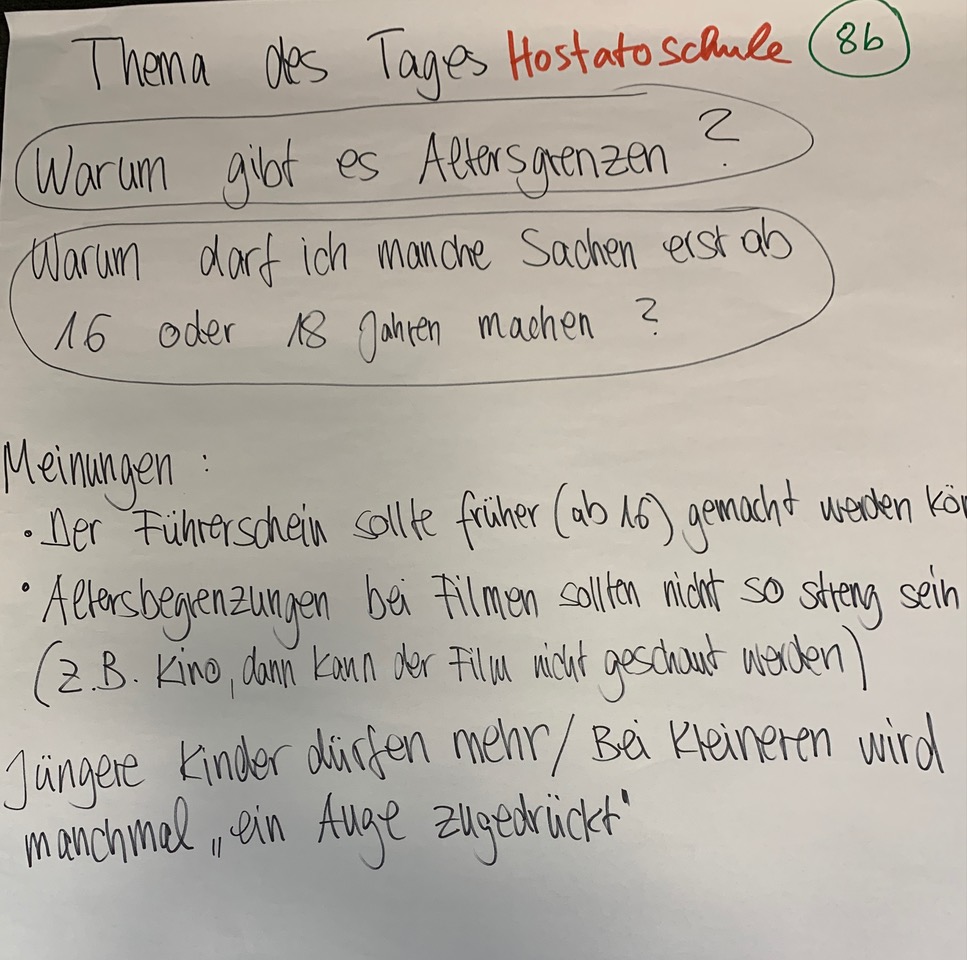 Thema des Tages Hostatoschule 8b
Warum gibt es Altersgrenzen ?
Warum darf ich manche Sachen erst ab
16 oder 18 Jahren machen ?
Meinungen :
• Der Führerschein sollte früher (ab 16) gemacht werden kön
• Altersbegrenzungen bei Filmen sollten nicht so streng sein
(z.B. Kino, dann kann der Film nicht geschaut werden)
Jüngere Kinder dürfen mehr / Bei Kleineren wird
manchmal „ein Auge zugedrückt"